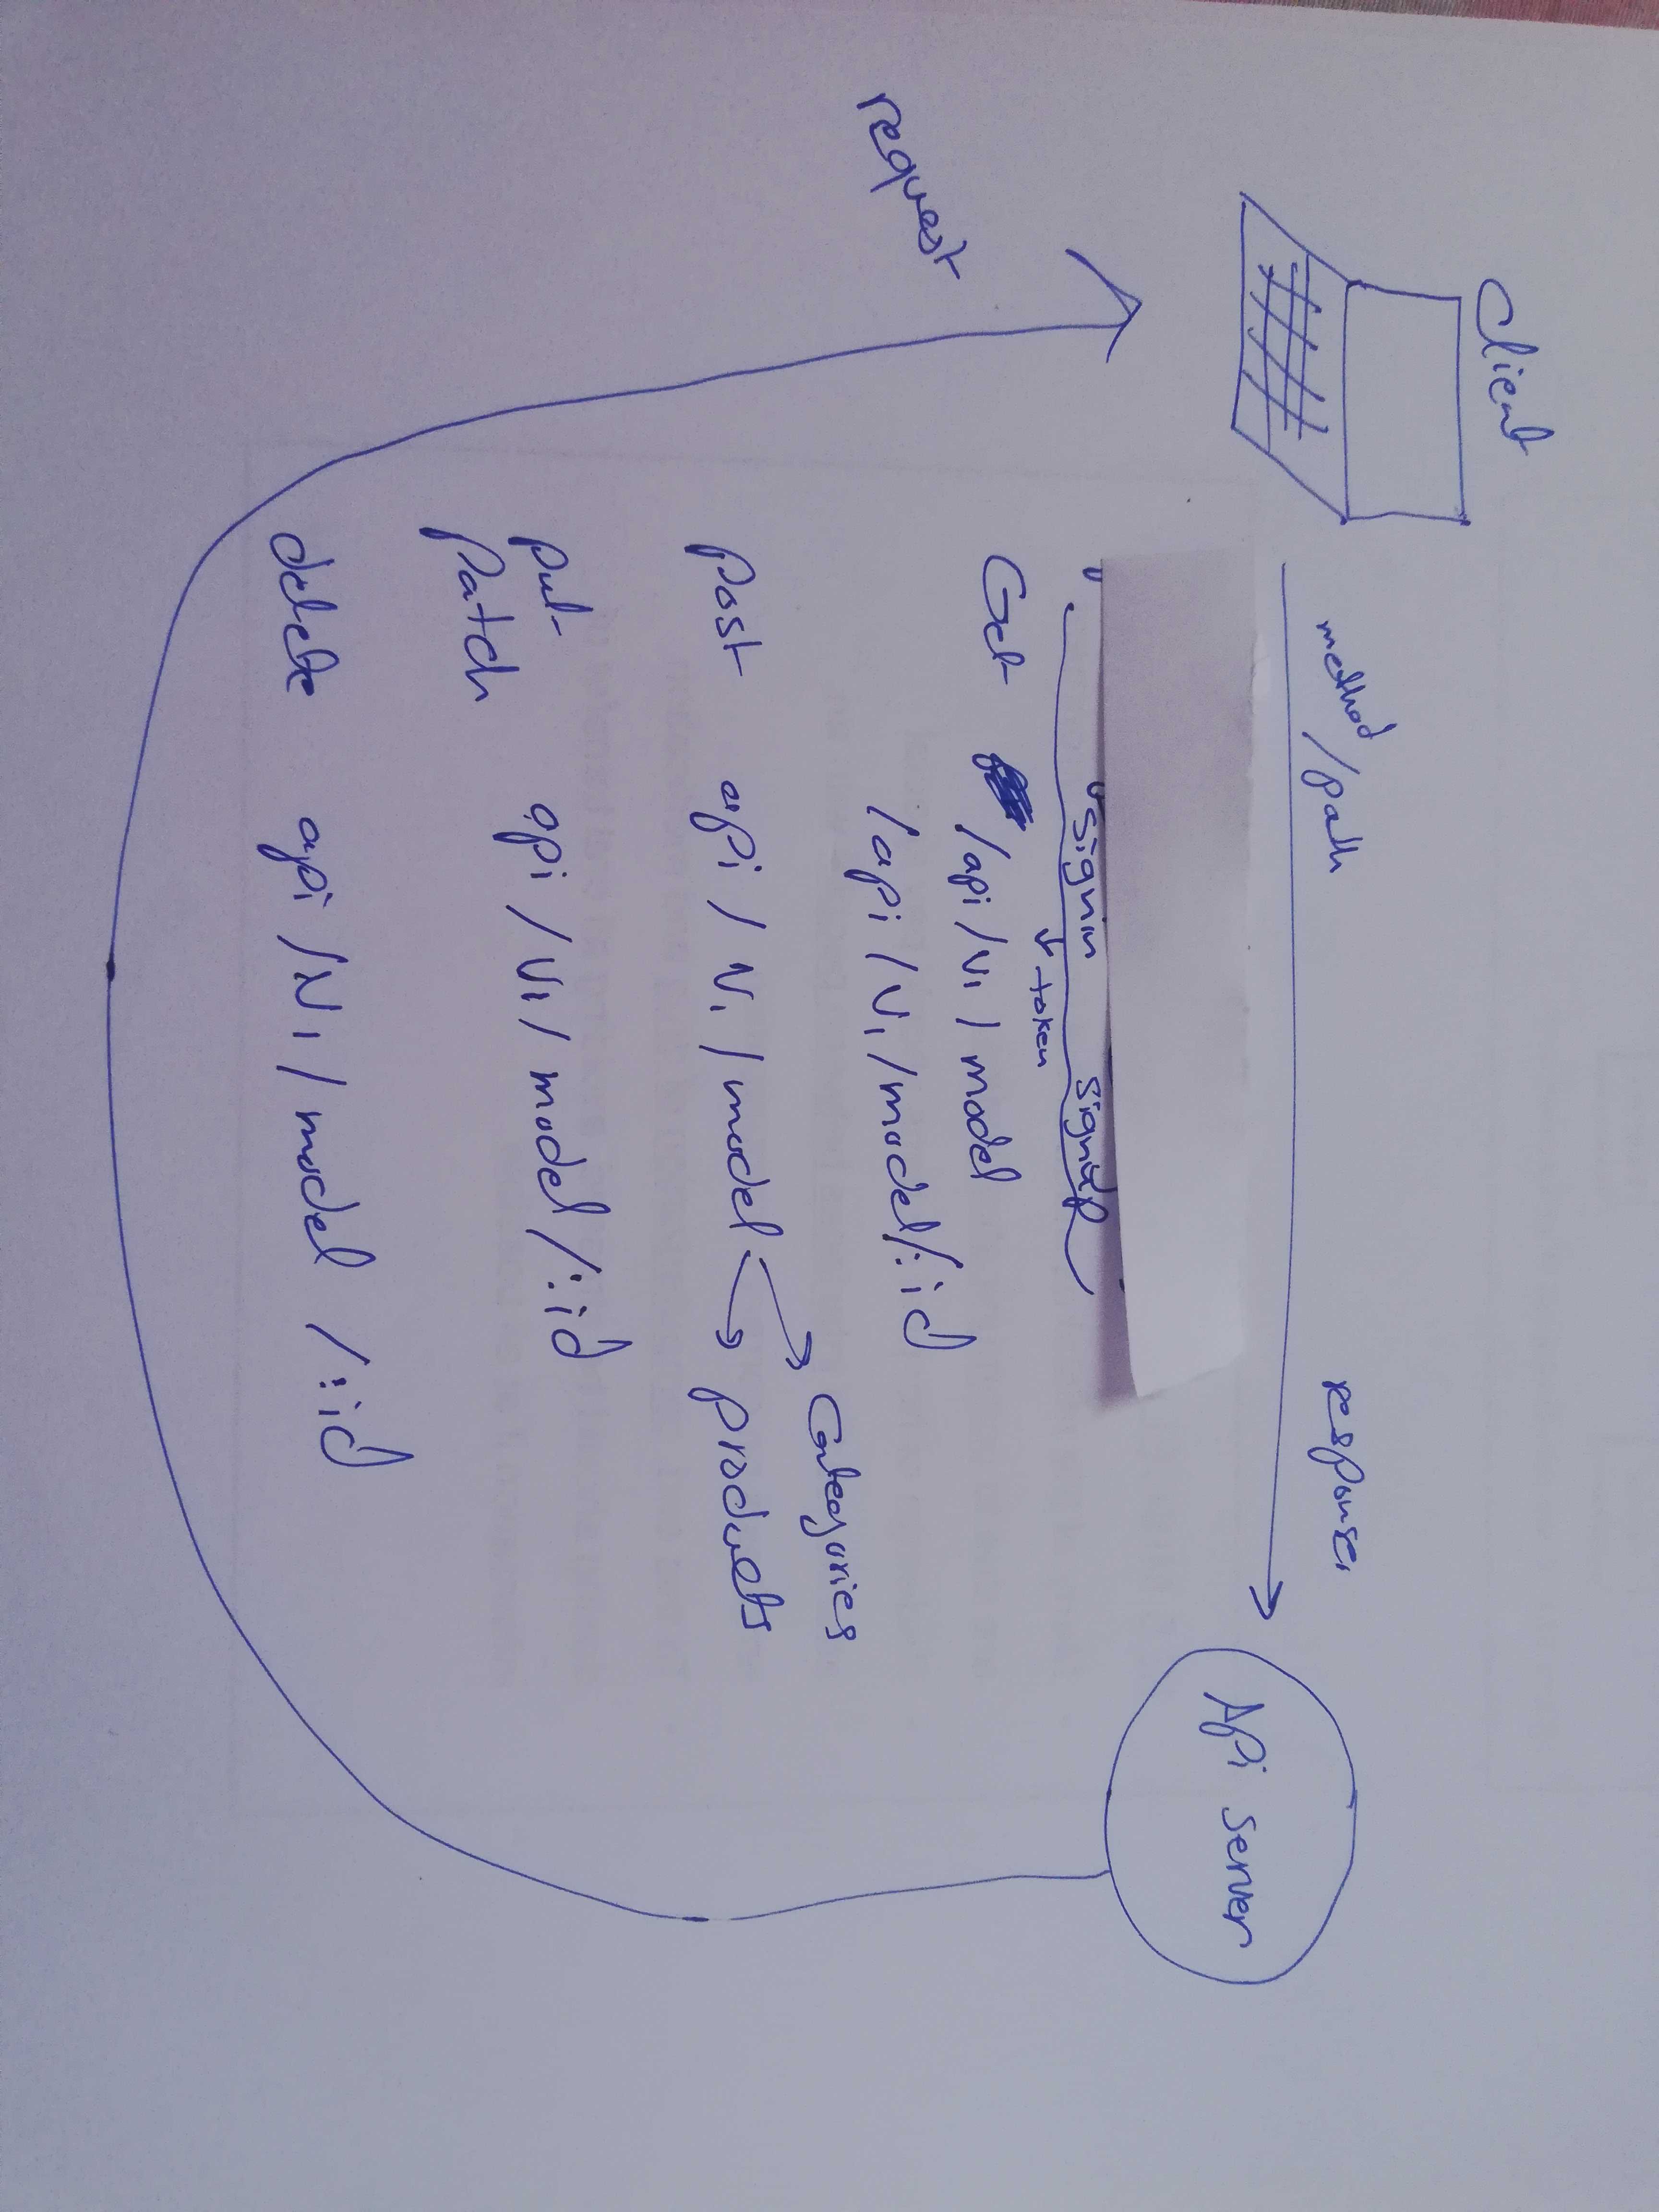 Client
method/path
response
Api Server
signin signup
token
request
Get /api/v1/model
/api/v1/model/:id
Post api/v1/model
Categories
products
put
patch
api/v1/model/:id
delete api/v1/model/:id